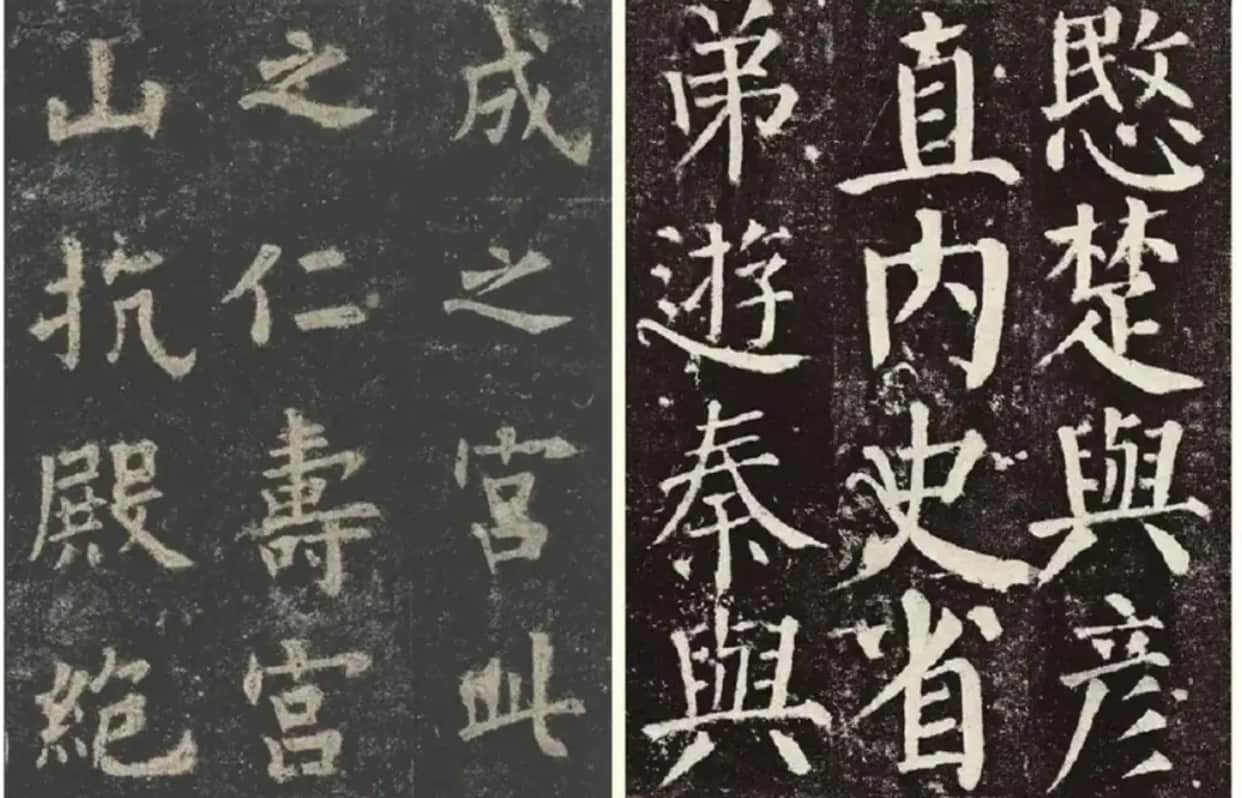 成之宮此
之仁壽宮
山抗殿絕
愍楚與彦
直内史省
弟遊秦與